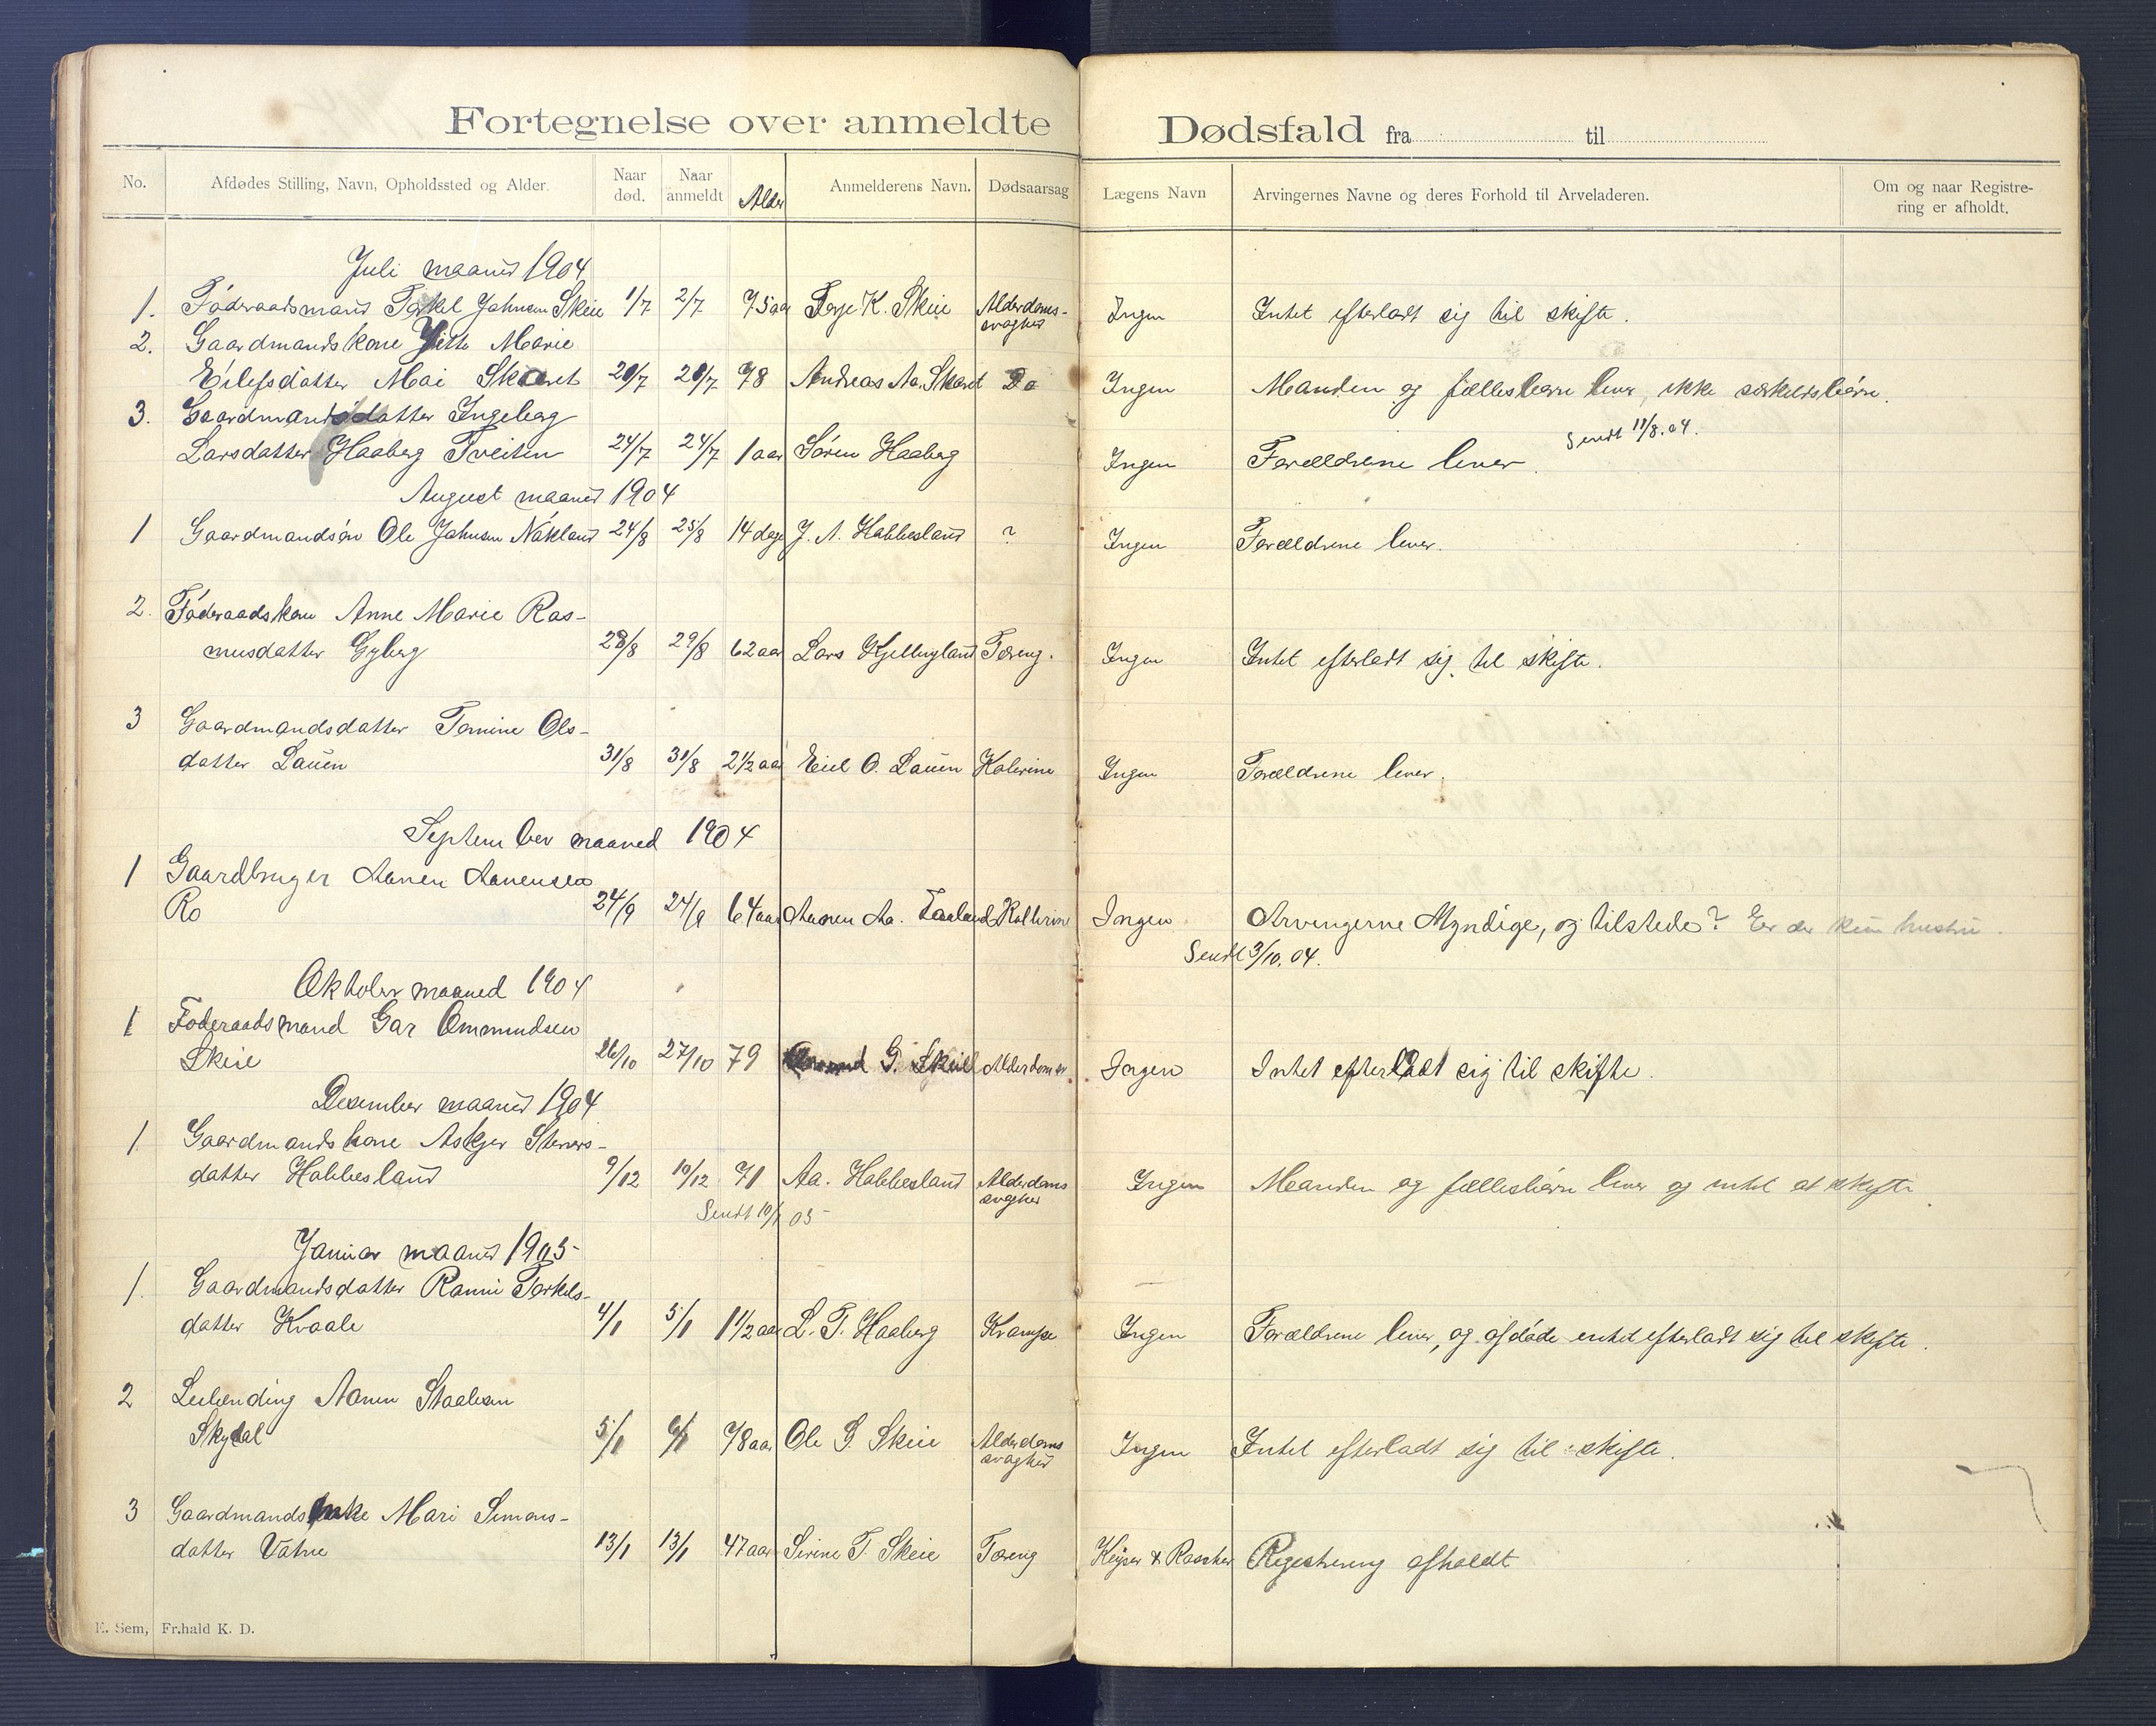 Fortegnelse over anmeldte Dødsfald fra til
No. Afdødes Stilling, Navn, Opholdssted og Alder. Naar død. Naar anmeldt Alder Anmelderens Navn. Dødsaarsag Lægens Navn Arvingernes Navne og deres Forhold til Arveladeren. Om og naar Registrering er afholdt.
Juli maaned 1904
1. Føderaadsmand Torkel Jahnsen Skeie 1/7 2/7 75 aar Terje K. Skeie Alderdomssvaghed Ingen Intet efterladt sig til skifte.
2. Gaardmandskone Marie
Eilefsdatter Moi Skaaret 20/7 20/7 78 Andreas Aa. Skaret Do Ingen Manden og fællesbørn lever, ikke særkuldsbørn.
3. Gaardmandsdatter Ingeborg
Larsdatter Haaberg Tveiten 24/7 24/7 1 aar Søren Haaberg Ingen Forældrene lever. Sendt 11/8.04.
August maaned 1904
1 Gaardmandsøn Ole Jahnsen Nákland 24/8 25/8 14 dage J. A. Habbesland ? Ingen Forældrene lever.
2. Føderaadskone Anne Marie Ras-
musdatter Gyberg 28/8 29/8 62 aar Lars Kjellingland Tæreng. Ingen Intet efterladt sig til skifte.
3 Gaardmandsdatter Tomine Ols-
datter Lauen 31/8 31/8 2 1/2 aar Eiel O. Lauen Kolerine Ingen Forældrene lever.
September maaned 1904
1 Gaardbruger Aanen Aanensen
Ro 24/9 24/9 64 aar Aanen Aa. Faaland Kollerine Ingen Arvingerne Myndige, og tilstede? Er der kun hustru.
Sendt 3/10.04.
Oktober maaned 1904
1 Føderaadsmand Gar Ommundsen
Skeie 26/10 27/10 79 G. Skeie Alderdomsv Ingen Intet efterladt sig til skifte.
Desember maaned 1904
1. Gaardmandskone Askjer Steners-
datter Habbesland 9/12 10/12 71 Aa. Habbesland Alderdomssvaghed Ingen Manden og fællesbørn lever og intet at skifte.
Sendt 10/1 05
Januar maaned 1905
1. Gaardmandsdatter Ranni Torkels-
datter Kvaale 4/1 5/1 1 1/2 aar L. T. Haaberg Krampe Ingen Forældrene lever, og afdøde intet efterladt sig til skifte.
2 Leilænding Aanen Staalesen
Skydal 5/1 6/1 78 aar Ole G. Skeie Alderdomssvaghed Ingen Intet efterladt sig til skifte.
3 Gaardmandsenke Mari Simons-
datter Vatne 13/1 13/1 47 aar Sirine T. Skeie Tæreng Keyser & Rascher Registrering afholdt
E. Sem, Fr.hald K. D.